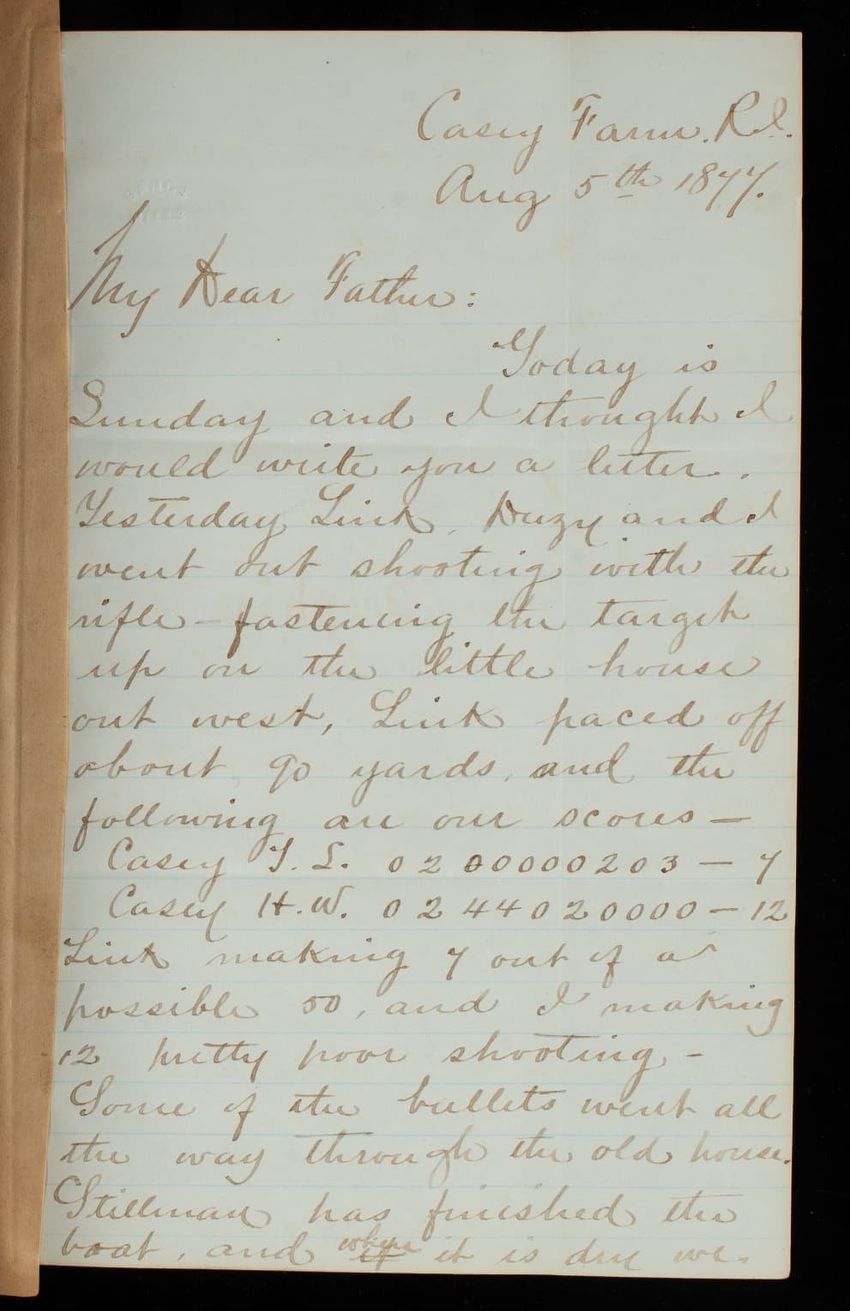 Casey Farm. R.I.
Aug 5th 1877.
My Dear Father:
Today is
Sunday and I thought I
would write you a letter.
Yesterday Link, Duzy and I
went out shooting with the
rifle - fastening the target
up on the little house
out west, Link paced off
about 90 yards, and the
following are our scores —
Casey T. L. 0200000203 — 7
Casey H. W. 0244020000 — 12
Link making 7 out of a
possible 50, and I making
12 pretty poor shooting -
Some of the bullets went all
the way through the old house.
Stillman has finished the
boat, and when it is dry we